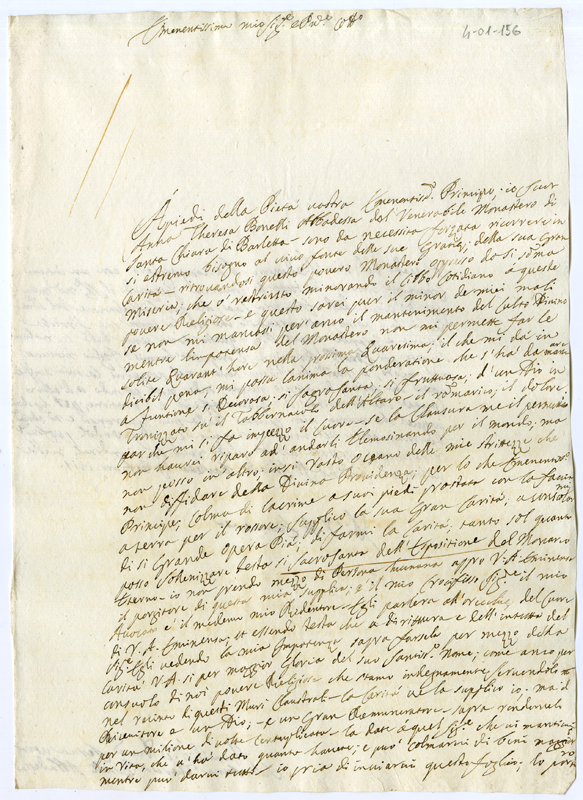 Emenentissimo mio Sig.re e P.ne Coll.mo
4-01-156
A piedi della Pietà vostra Emenentis.o Principe, io Suor
Anna Theresa Bonelli Abbadessa del Venerabile Monastero di
Santa Chiara di Barletta sono da necessità forzata ricorrere in
sì estremo bisogno al vivo fonte delle sue Grazie, della sua Gran
Carità ritrovandosi questo povero Monastero oppresso da sì somma
Miseria, che s'è restritto minorando il Cibbo Cotidiano à queste
povere Religiose e questo saria pur il minor de miei mali
se non mi mancassi per anco il mantenimento del Culto Divino
mentre l'impotenza del Monastero non mi permette far le
solite Quarant'hore nella prossima Quaresima, il che mi dà in
dicibil pena, mi passa l'anima la ponderatione che s'hà da mancare
a funtione sì Decorosa, sì sagrosanta, sì fruttuosa, d'un Dio in
Tronizzato sù il Tabbernacolo dell'Altaro, il ramarico, il dolore,
par che mi si fà in pezzo il Cuore se la Clausura me il permettesse
non haurei riparo ad andarli Elemosinando per il mondo, ma
non posso in altro, in sì Vasto Oceano delle mie strettezze che
non diffidare della Divina Providenza; per lo che Emenentis.o
Principe, Colma di lacrime a suoi piedi prostata con la faccia
a terra per il rossore, supplico la sua Gran Carità, a consolarmi
di sì Grande Opera Pia, di farmi la Carità, tanto sol quanto
posso sollennizzare festa sì Sacrosanta dell'Espositione del Monarca
Eterno io non prendo mezzo di Persona humana appo V. A. Eminentis.
il porgitore di questa mia supplica, è il mio Crocifisso Sig.re il mio
Avocato è il medemo mio Redentore Egli parlerà all'orecchie del Cuore
di V. A. Eminenza, et essendo festa che à dirittura e dell'interesse del
Sig.re Egli vedendo la mia Impotenza saprà farsela per mezzo della
Carità V. A. sì per maggior Gloria del suo Santis.o Nome, come anco per
consuolo di noi povere Religiose che stamo indegnamente servendolo
nel recinto di questi Muri Claustrali la Carità ve la supplico io, ma il
Riceuitore è un Dio, e un Gran Remuneratore saprà rendervela
per un milione di volte Centuplicato la date à quel Sig.re che vi mantiene
in Vita, che v'hà dato quanto havete, e può colmarvi di beni maggiori
mentre può darvi tutto io pria di inviarvi questo foglio lo porsi